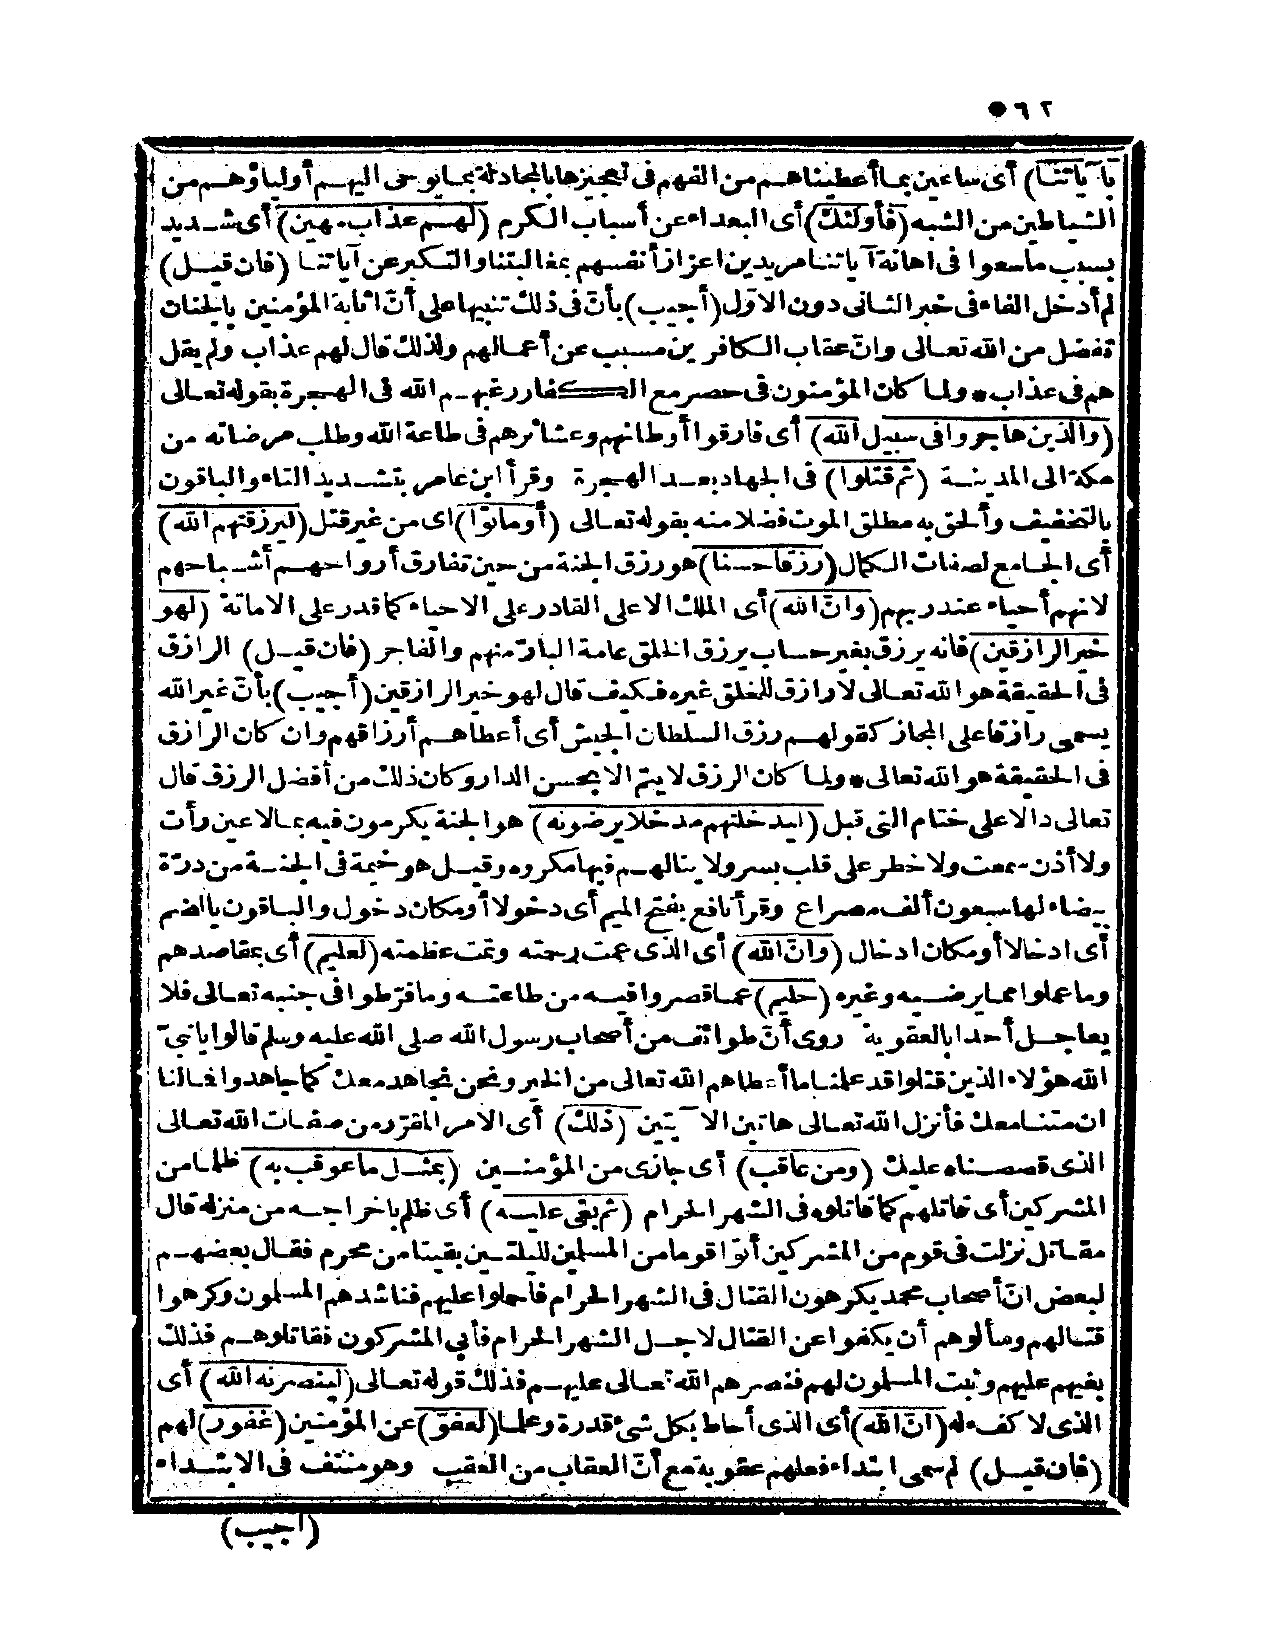 ٥٦٢
بآياتنا) أى ساعين بما أعطيناهم من الفهم فى تعجيزها بالمجادلة بما يوحى اليهم أولياؤهم من
الشياطين من الشبه (فأولئك) أى البعداء عن أسباب الكرم (لهم عذاب مهين) أى شديد
بسبب ما سعوا فى اهانة آياتنا مريدين اعزاز أنفسهم بمغالبتنا والتكبر عن آياتنا (فان قيل)
لم أدخل الفاء فى خبر الثانى دون الاوّل (أجيب) بأنّ فى ذلك تنبيها على أنّ اثابة المؤمنين بالجنان
تفضل من الله تعالى وانّ عقاب الكافرين مسبب عن أعمالهم ولذلك قال لهم عذاب ولم يقل
هم فى عذاب * ولما كان المؤمنون فى حصر مع الكفار رغبهم الله فى الهجرة بقوله تعالى
(والذين هاجروا فى سبيل الله) أى فارقوا أوطانهم وعشائرهم فى طاعة الله وطلب مرضاته من
مكة الى المدينة (ثم قتلوا) فى الجهاد بعد الهجرة وقرأ ابن عامر بتشديد التاء والباقون
بالتخفيف وألحق به مطلق الموت فضلا منه بقوله تعالى (أو ماتوا) اى من غير قتل (ليرزقنهم الله)
أى الجامع لصفات الكمال (رزقا حسنا) هو رزق الجنة من حين تفارق أرواحهم أشباحهم
لانهم أحياء عند ربهم (وانّ الله) أى الملك الاعلى القادر على الاحياء كما قدر على الاماتة (لهو
خير الرازقين) فانه يرزق بغير حساب يرزق الخلق عامة البارّ منهم والفاجر (فان قيل) الرازق
فى الحقيقة هو الله تعالى لا رازق للخلق غيره فكيف قال لهو خير الرازقين (أجيب) بأنّ غير الله
يسمى رازقا على المجاز كقولهم رزق السلطان الجيش أى أعطاهم أرزاقهم وان كان الرازق
فى الحقيقة هو الله تعالى * ولما كان الرزق لا يتمّ الا بحسن الدار وكان ذلك من أفضل الرزق قال
تعالى دالا على ختام التى قبل (ليدخلنهم مدخلا يرضونه) هو الجنة يكرمون فيه بما لا عين رأت
ولا أذن سمعت ولا خطر على قلب بشر ولا ينالهم فيها مكروه وقيل هو خيمة فى الجنة من درّة
بيضاء لها سبعون ألف مصراع وقرأ نافع بفتح الميم أى دخولا أو مكان دخول والباقون بالضم
أى ادخالا أو مكان ادخال (وانّ الله) أى الذى عمت رحمته وتمت عظمته (لعليم) أى بمقاصدهم
وما عملوا مما يرضيه وغيره (حليم) عما قصروا فيه من طاعته وما فرّطوا فى جنبه تعالى فلا
يعاجل أحدا بالعقوبة روى أنّ طوائف من أصحاب رسول الله صلى الله عليه وسلم قالوا يا نبيّ
الله هؤلاء الذين قتلوا قد علمنا ما أعطاهم الله تعالى من الخير ونحن نجاهد معك كما جاهدوا فما لنا
ان متنا معك فأنزل الله تعالى هاتين الآيتين (ذلك) أى الامر المقرّر من صفات الله تعالى
الذى قصصناه عليك (ومن عاقب) أى جازى من المؤمنين (بمثل ما عوقب به) ظلما من
المشركين أى قاتلهم كما قاتلوه فى الشهر الحرام (ثم بغى عليه) أى ظلم باخراجه من منزله قال
مقاتل نزلت فى قوم من المشركين أتوا قوما من المسلمين لليلتين بقيتا من محرم فقال بعضهم
لبعض انّ أصحاب محمد يكرهون القتال فى الشهر الحرام فاحملوا عليهم فناشدهم المسلمون وكرهوا
قتالهم وسألوهم أن يكفوا عن القتال لاجل الشهر الحرام فأبى المشركون فقاتلوهم فذلك
بغيهم عليهم وثبت المسلمون لهم فنصرهم الله تعالى عليهم فذلك قوله تعالى (لينصرنه الله) أى
الذى لا كفء له (انّ الله) أى الذى أحاط بكل شئ قدرة وعلما (لعفوّ) عن المؤمنين (غفور) لهم
(فان قيل) لم سمى ابتداء فعلهم عقوبة مع أنّ العقاب من العقب وهو منتف فى الابتداء
(أجيب)